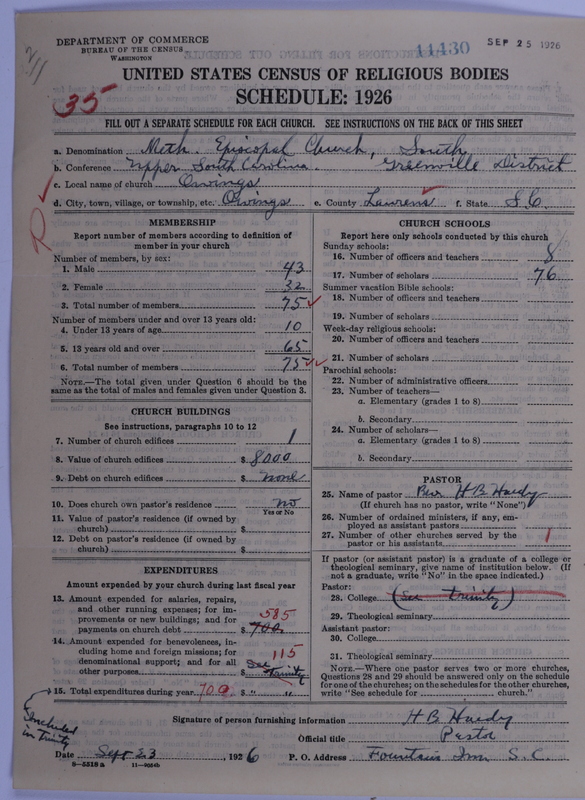 DEPARTMENT OF COMMERCE
BUREAU OF THE CENSUS
WASHINGTON
11430
SEP 25 1926
UNITED STATES CENSUS OF RELIGIOUS BODIES
SCHEDULE: 1926
35
FILL OUT A SEPARATE SCHEDULE FOR EACH CHURCH. SEE INSTRUCTIONS ON THE BACK OF THIS SHEET
a. Denomination Meth. Episcopal Church, South
b. Conference Upper South Carolina. Greenville District
c. Local name of church Owings
d. City, town, village, or township, etc. Owings e. County Laurens f. State S.C.
R
MEMBERSHIP
Report number of members according to definition of
member in your church
Number of members, by sex:
1. Male 43
2. Female 32
3. Total number of members 75
Number of members under and over 13 years old:
4. Under 13 years of age 10
5. 13 years old and over 65
6. Total number of members 75
NOTE.—The total given under Question 6 should be the
same as the total of males and females given under Question 3.
CHURCH BUILDINGS
See instructions, paragraphs 10 to 12
7. Number of church edifices 1
8. Value of church edifices $ 8000
9. Debt on church edifices $ none
10. Does church own pastor's residence no
Yes or No
11. Value of pastor's residence (if owned by
church) $
12. Debt on pastor's residence (if owned by
church) $
EXPENDITURES
Amount expended by your church during last fiscal year
13. Amount expended for salaries, repairs,
and other running expenses; for im-
provements or new buildings; and for 585
payments on church debt $ 700
14. Amount expended for benevolences, in-
cluding home and foreign missions; for 115
denominational support; and for all See
other purposes Trinity
15. Total expenditures during year 700 $ " "
CHURCH SCHOOLS
Report here only schools conducted by this church
Sunday schools:
16. Number of officers and teachers 8
17. Number of scholars 76
Summer vacation Bible schools:
18. Number of officers and teachers
19. Number of scholars
Week-day religious schools:
20. Number of officers and teachers
21. Number of scholars
Parochial schools:
22. Number of administrative officers
23. Number of teachers—
a. Elementary (grades 1 to 8)
b. Secondary
24. Number of scholars—
a. Elementary (grades 1 to 8)
b. Secondary
PASTOR
25. Name of pastor Rev H B Hardy
(If church has no pastor, write "None")
26. Number of ordained ministers, if any, em-
ployed as assistant pastors
27. Number of other churches served by the
pastor or his assistants 1
If pastor (or assistant pastor) is a graduate of a college or
theological seminary, give name of institution below. (If
not a graduate, write "No" in the space indicated.)
Pastor:
28. College (See Trinity)
29. Theological seminary
Assistant pastor:
30. College
31. Theological seminary
NOTE.—Where one pastor serves two or more churches,
Questions 28 and 29 should be answered only on the schedule
for one of the churches; on the schedules for the other churches,
write "See schedule for church."
Included
in Trinity
Signature of person furnishing information H B Hardy
Official title Pastor
Date Sept 23, 1926 P. O. Address Fountain Inn S. C.
8—5518 a 11—9054b